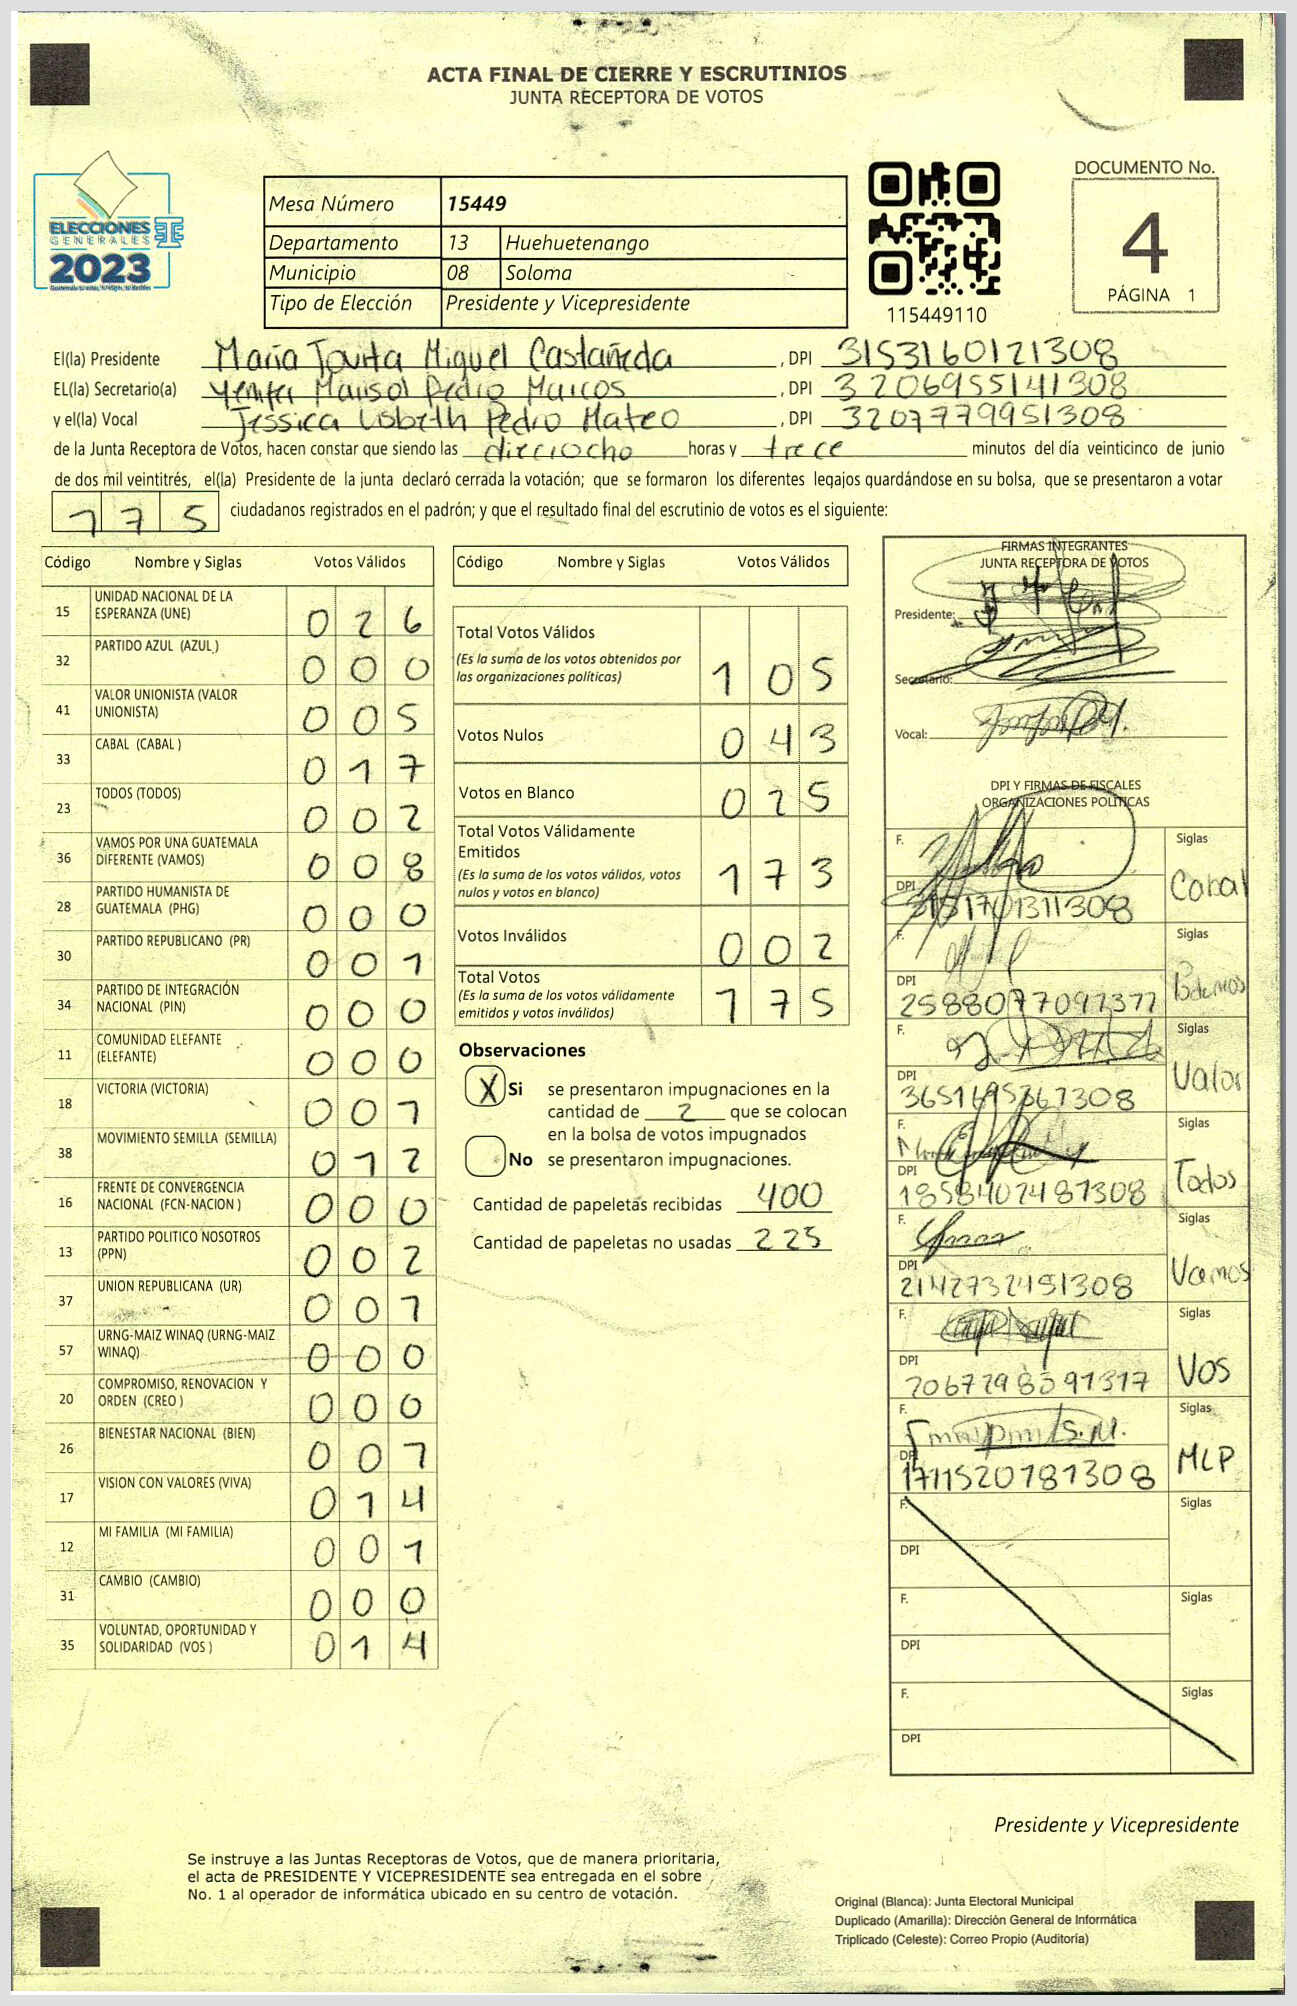 ACTA FINAL DE CIERRE Y ESCRUTINIOS
JUNTA RECEPTORA DE VOTOS
ELECCIONES
GENERALES
2023
Mesa Número 15449
Departamento 13 Huehuetenango
Municipio 08 Soloma
Tipo de Elección Presidente y Vicepresidente
115449110
DOCUMENTO No.
4
PÁGINA 1
El(la) Presidente María Miguel Castañeda , DPI 3153160121308
EL(la) Secretario(a) Yenifer Marisol Pedro Marcos , DPI 3206955141308
y el(la) Vocal Jessica Lisbeth Pedro Mateo , DPI 3207779951308
de la Junta Receptora de Votos, hacen constar que siendo las dieciocho horas y trece minutos del día veinticinco de junio
de dos mil veintitrés, el(la) Presidente de la junta declaró cerrada la votación; que se formaron los diferentes legajos guardándose en su bolsa, que se presentaron a votar
175 ciudadanos registrados en el padrón; y que el resultado final del escrutinio de votos es el siguiente:
Código Nombre y Siglas Votos Válidos
15 UNIDAD NACIONAL DE LA
ESPERANZA (UNE) 026
32 PARTIDO AZUL (AZUL) 000
41 VALOR UNIONISTA (VALOR
UNIONISTA) 005
33 CABAL (CABAL ) 017
23 TODOS (TODOS) 002
36 VAMOS POR UNA GUATEMALA
DIFERENTE (VAMOS) 008
28 PARTIDO HUMANISTA DE
GUATEMALA (PHG) 000
30 PARTIDO REPUBLICANO (PR) 001
34 PARTIDO DE INTEGRACIÓN
NACIONAL (PIN) 000
11 COMUNIDAD ELEFANTE
(ELEFANTE) 000
18 VICTORIA (VICTORIA) 001
38 MOVIMIENTO SEMILLA (SEMILLA) 012
16 FRENTE DE CONVERGENCIA
NACIONAL (FCN-NACION ) 000
13 PARTIDO POLITICO NOSOTROS
(PPN) 002
37 UNION REPUBLICANA (UR) 001
57 URNG-MAIZ WINAQ (URNG-MAIZ
WINAQ) 000
20 COMPROMISO, RENOVACION Y
ORDEN (CREO ) 000
26 BIENESTAR NACIONAL (BIEN) 001
17 VISION CON VALORES (VIVA) 014
12 MI FAMILIA (MI FAMILIA) 001
31 CAMBIO (CAMBIO) 000
35 VOLUNTAD, OPORTUNIDAD Y
SOLIDARIDAD (VOS ) 014
Código Nombre y Siglas Votos Válidos
Total Votos Válidos
(Es la suma de los votos obtenidos por
las organizaciones políticas) 105
Votos Nulos 043
Votos en Blanco 025
Total Votos Válidamente
Emitidos
(Es la suma de los votos válidos, votos
nulos y votos en blanco) 173
Votos Inválidos 002
Total Votos
(Es la suma de los votos válidamente
emitidos y votos inválidos) 175
Observaciones
X Si se presentaron impugnaciones en la
cantidad de 2 que se colocan
en la bolsa de votos impugnados
No se presentaron impugnaciones.
Cantidad de papeletas recibidas 400
Cantidad de papeletas no usadas 225
FIRMAS INTEGRANTES
JUNTA RECEPTORA DE VOTOS
Presidente:
Secretario:
Vocal:
DPI Y FIRMAS DE FISCALES
ORGANIZACIONES POLÍTICAS
F. Siglas
DPI Cabal
F. Siglas
DPI 2588077091311 Podemos
F. Siglas
DPI 3651695361308 Valor
F. Siglas
DPI 1858407481308 Todos
F. Siglas
DPI 2142732451308 Vamos
F. Siglas
DPI VOS
F. Siglas
DPI 1711520181308 MLP
F. Siglas
DPI
F. Siglas
DPI
F. Siglas
DPI
Presidente y Vicepresidente
Se instruye a las Juntas Receptoras de Votos, que de manera prioritaria,
el acta de PRESIDENTE Y VICEPRESIDENTE sea entregada en el sobre
No. 1 al operador de informática ubicado en su centro de votación.
Original (Blanca): Junta Electoral Municipal
Duplicado (Amarilla): Dirección General de Informática
Triplicado (Celeste): Correo Propio (Auditoría)